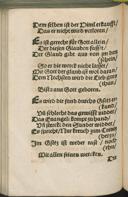 Dem selben ist der Himel erkaufft/
Das er nicht wird verloren.
Es ist gerecht für Gott allein/
Der diesen Glauben fasset/
Der Glaub gibt aus von im den schein/
So er die werck nicht lasset/
Mit Gott der glaub ist wol daran/
Dem Nechsten wird die Lieb guts thun/
Bistu aus Gott geboren.
Es wird die sünd durchs Gesetz erkand/
Vnd schlecht das gewissen nider/
Das Euangeli kompt zu hand/
Vnd sterckt den Sünder wider/
Es spricht/ Nur kreuch zum Creutz herzu/
Im Gsetz ist weder rast noch rhu/
Mit allen seinen wercken.
Die